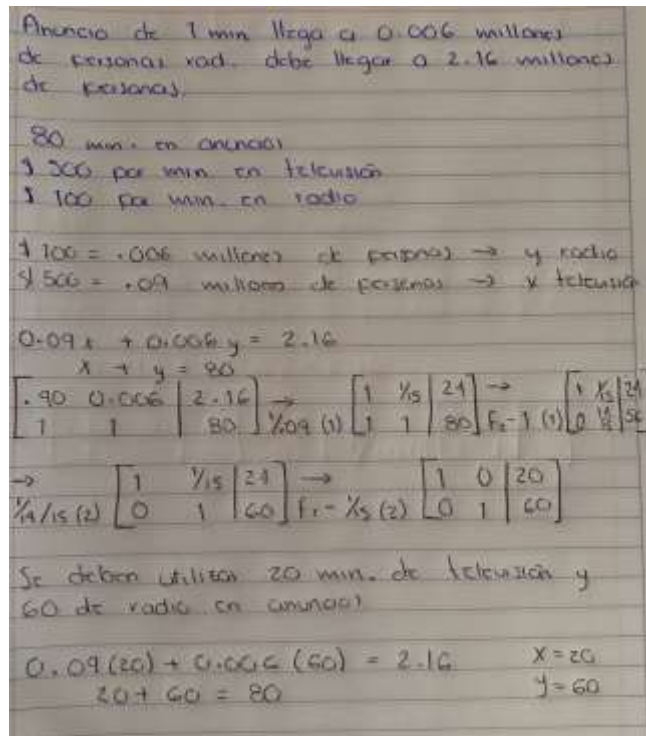 Anuncio de 1 min llega a 0.006 millones
de personas rad. debe llegar a 2.16 millones
de personas.
80 min. en anuncios
$ 500 por min. en televisión
$ 100 por min. en radio
$ 100 = .006 millones de personas → y radio
$ 500 = .09 millones de personas → x televisión
0.09x + 0.006y = 2.16
x + y = 80
[.90 0.006 | 2.16] → [1 1/15 | 24] → [1 1/15 | 24]
[1 1 | 80] 1/.09 (1) [1 1 | 80] F2 - 1 (1) [0 14/15 | 56]
→ [1 1/15 | 24] → [1 0 | 20]
1/14/15 (2) [0 1 | 60] F1 - 1/15 (2) [0 1 | 60]
Se deben utilizar 20 min. de televisión y
60 de radio en anuncios
0.09(20) + 0.006(60) = 2.16 x = 20
20 + 60 = 80 y = 60